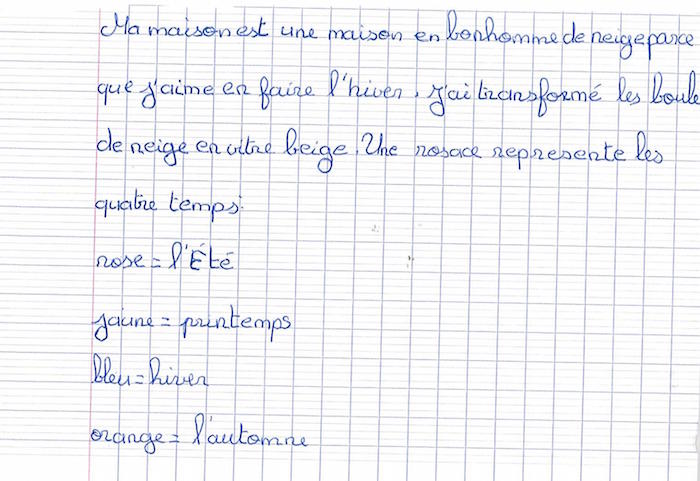 Ma maison est une maison en bonhomme de neige parce
que j'aime en faire l'hiver. j'ai transformé les boule
de neige en vitre beige. Une rosace represente les
quatre temps:
rose = l'Été
jaune = printemps
bleu = hiver
orange = l'automne